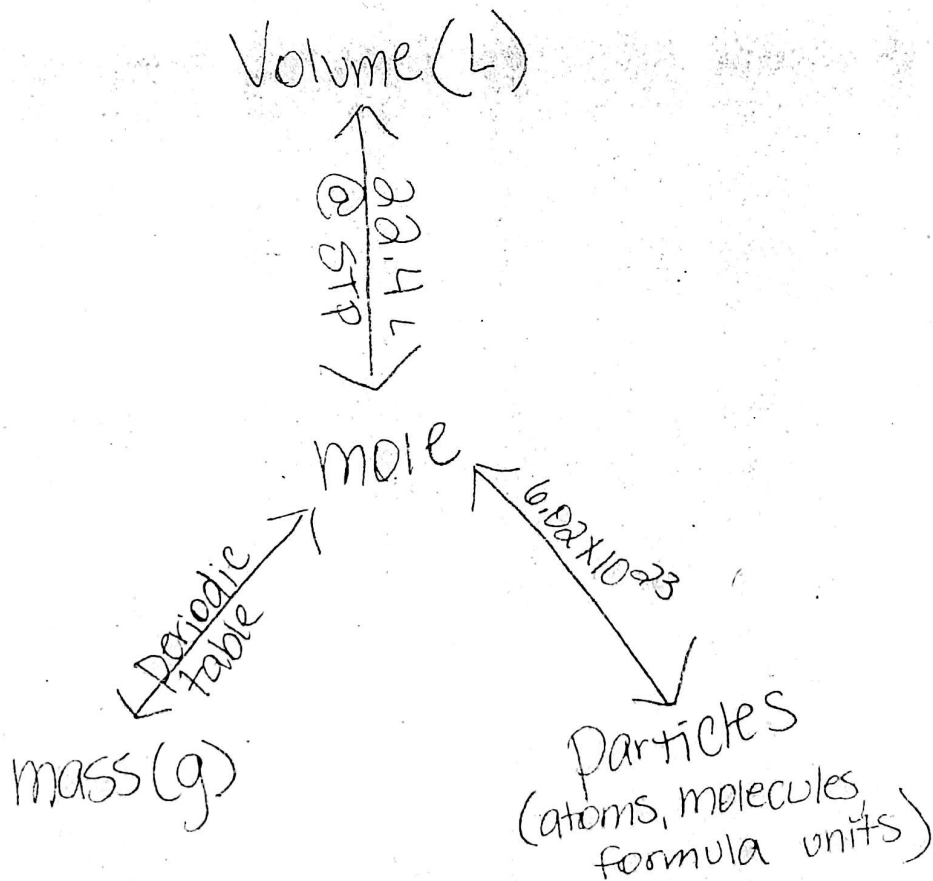 Volume (L)
22.4 L
@ STP
mole
6.02x10 23
periodic
table
mass (g)
Particles
(atoms, molecules,
formula units)